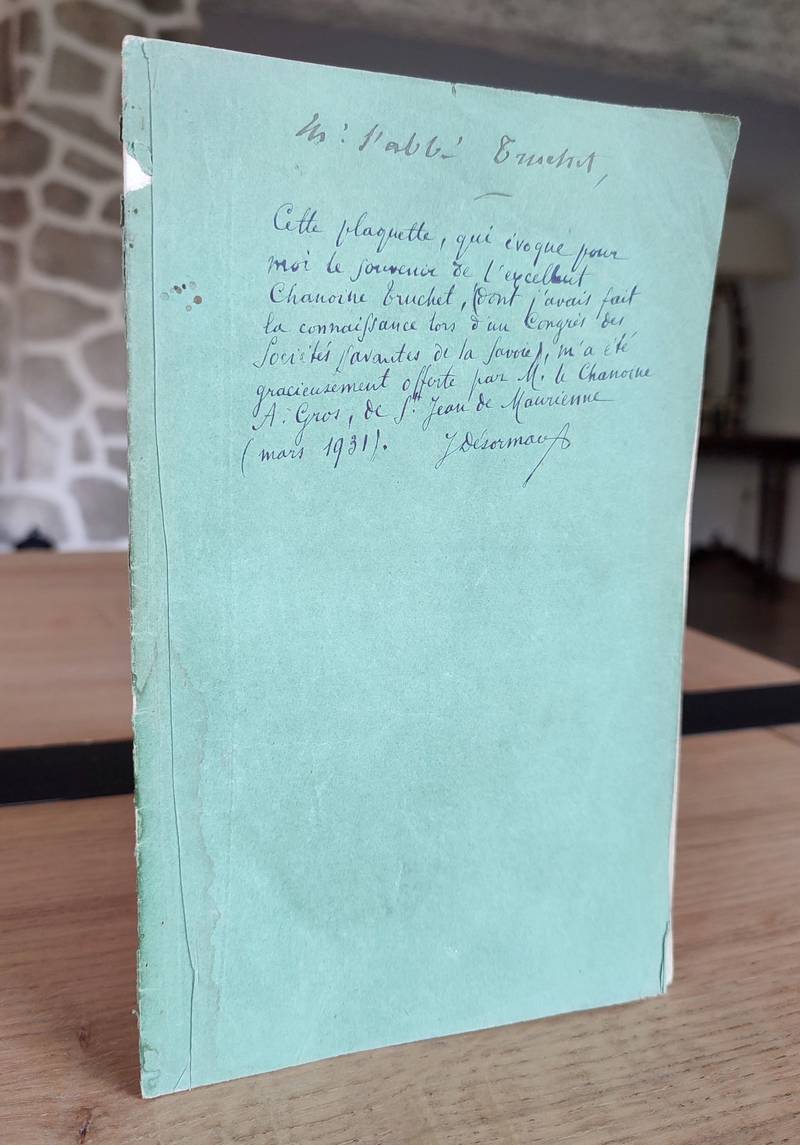 Mr l'abbé Truchet,
Cette plaquette, qui évoque pour
moi le souvenir de l'excellent
Chanoine Truchet, (dont j'avais fait
la connaissance lors d'un Congrès des
Sociétés Savantes de la Savoie), m'a été
gracieusement offerte par M. le Chanoine
A. Gros, de St Jean de Maurienne
(mars 1931). J Désormaux